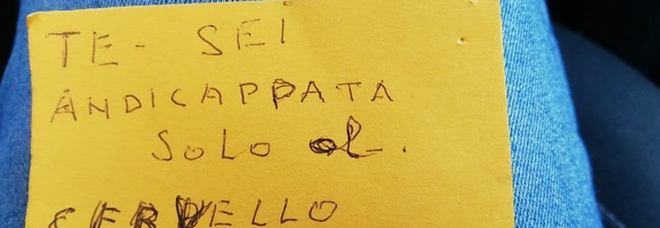 TE- SEI
ANDICAPPATA
SOLO al.
CERVELLO